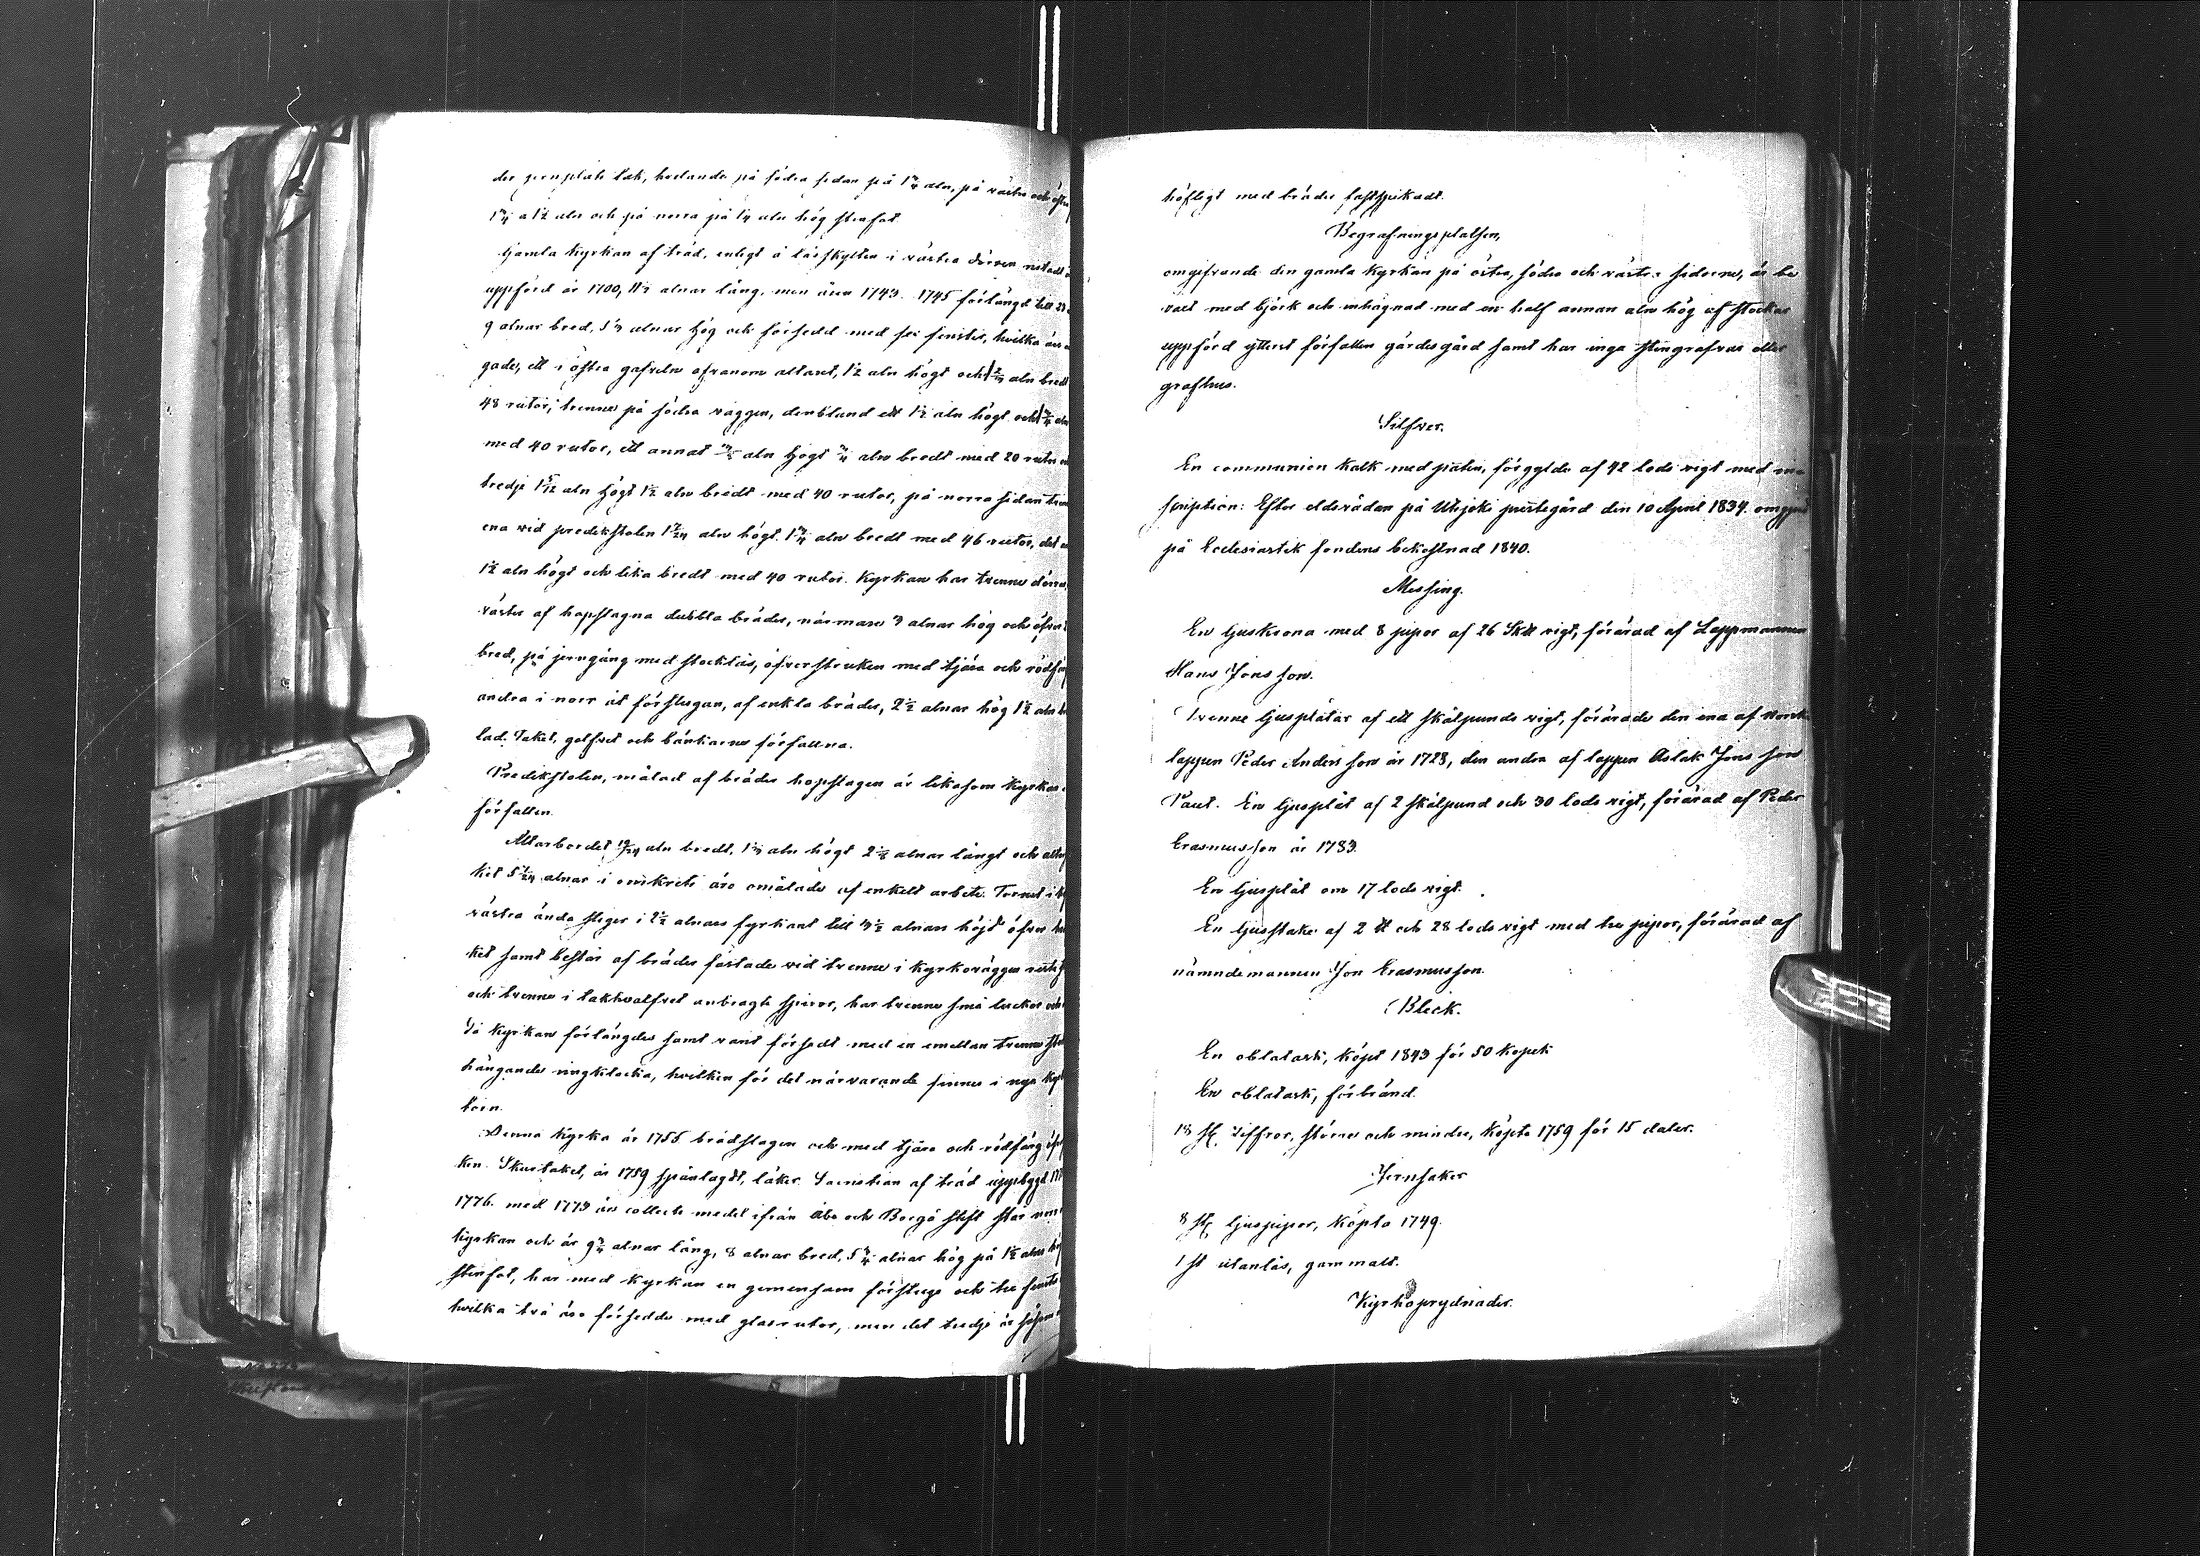 der jernplåts tak, hvilande på södra sidan på 1 3/4 aln, på västra och östra
1 3/4 a 1 1/2 aln och på norra på 1/4 aln hög stenfot.
Gamla Kyrkan af träd, enligt å låsskylten i västra dörren
uppförd år 1700, 11 1/2 alnar lång, men åren 1743. 1745 förlängd till
9 alnar bred, 5 1/3 alnar hög och försedd med sex fenster, hvilka
gader, ett i östra gafveln ofvanom altaret, 1 1/2 aln högt och aln bredt
48 rutor, trenne på södra väggen, deribland ett 1 1/2 aln högt och
med 40 rutor, ett annat aln högt 3/4 aln bredt med 20 rutor
tredje 1 5/12 aln högt 1 1/2 aln bredt med 40 rutor, på norra sidan
ena vid predikstolen 1 7/24 aln högt 1 3/4 aln bredt med 46 rutor, det
1 1/2 aln högt och lika bredt med 40 rutor. Kyrkan har trenne dörrar,
väster af hopslagna dubbla bräder, närmare 3 alnar hög och öfver
bred, på jerngång med stocklås, öfverstruken med tjära och rödfärg
andra i norr åt förstugan, af enkla bräder, 2 1/2 alnar hög 1 1/2 aln
lad. Taket, golfvet och bänkarne förfallna.
Predikstolen, målad af bräder hopslagen är likasom Kyrkan
förfallen.
Altarbordet aln bredt, 1 1/3 aln högt 2 1/8 alnar långt och
ket 5 7/24 alnar i omskrets äro omålade af enkelt arbete. Tornet i
västra ända stiger i 2 1/2 alnars fyrkant till 3 1/2 alnars höjd öfver
ket samt består af bräder fästade vid trenne i kyrkoväggen
och trenne i takhvalfvet anbragte spiror, har trenne små luckor och
då Kyrkan förlängdes samt vant försedt med en emellan trenne
hängande ringklocka, hvilken för det närvarande finnes i nya
torn.
Denna Kyrka är 1755 brädslagen och med tjära och rödfärg
ken. Skurtaket, år 1759 spånlagdt, läker. Sacristian af träd uppbyggd
1776. med 1773 års collecte medel ifrån Åbo och Borgå stift står
kyrkan och är 9 3/4 alnar lång, 8 alnar bred, 5 3/4 alnar hög på 1 1/2 alns
stenfot, har med kyrkan en gemensam förstuga och tre
hvilka två äro försedde med glasrutor, men det tredje är
höfligt med bräder fastspikadt.
Begrafningsplatsen,
omgifvande den gamla Kyrkan på östra, södra och västra sidorne, är be
växt med björk och inhägnad med en half annan aln hög af stockar
uppförd ytterst förfallen gärdesgård samt har inga stengrafvar eller
grafhus.
Silfver.
En communion Kalk med paten, förgylde af 42 lods vigt med in
scription: Efter eldsvådan på Utsjoki prestegård den 10 April 1834.
på Ecclesiastik fondens bekostnad 1840.
Messing.
En ljuskrona med 8 pipor af 26 vigt, förärad af Lappmannen
Hans Jonsson.
Trenne ljusplåtar af ett skålpunds vigt, förärade den ena af Norsk
lappen Peder Andersson år 1728, den andra af lappen Aslak Jonsson
Paut. En ljusplåt af 2 skålpund och 30 lods vigt, förärad af Peder
Erasmusson år 1783.
En ljusplåt om 17 lods vigt.
En ljusstake af 2 ℔ och 28 lods vigt med tre pipor, förärad af
nämndemannen Jon Erasmusson.
Bleck.
En oblatask, köpt 1843 för 50 kopek
En oblatask, förbränd.
18 st. Siffror, större och mindre, köpte 1759 för 15 daler.
Jernsaker
8 st. ljuspipor, köpta 1749.
1 st utanlås, gammalt.
Kyrkoprydnader.